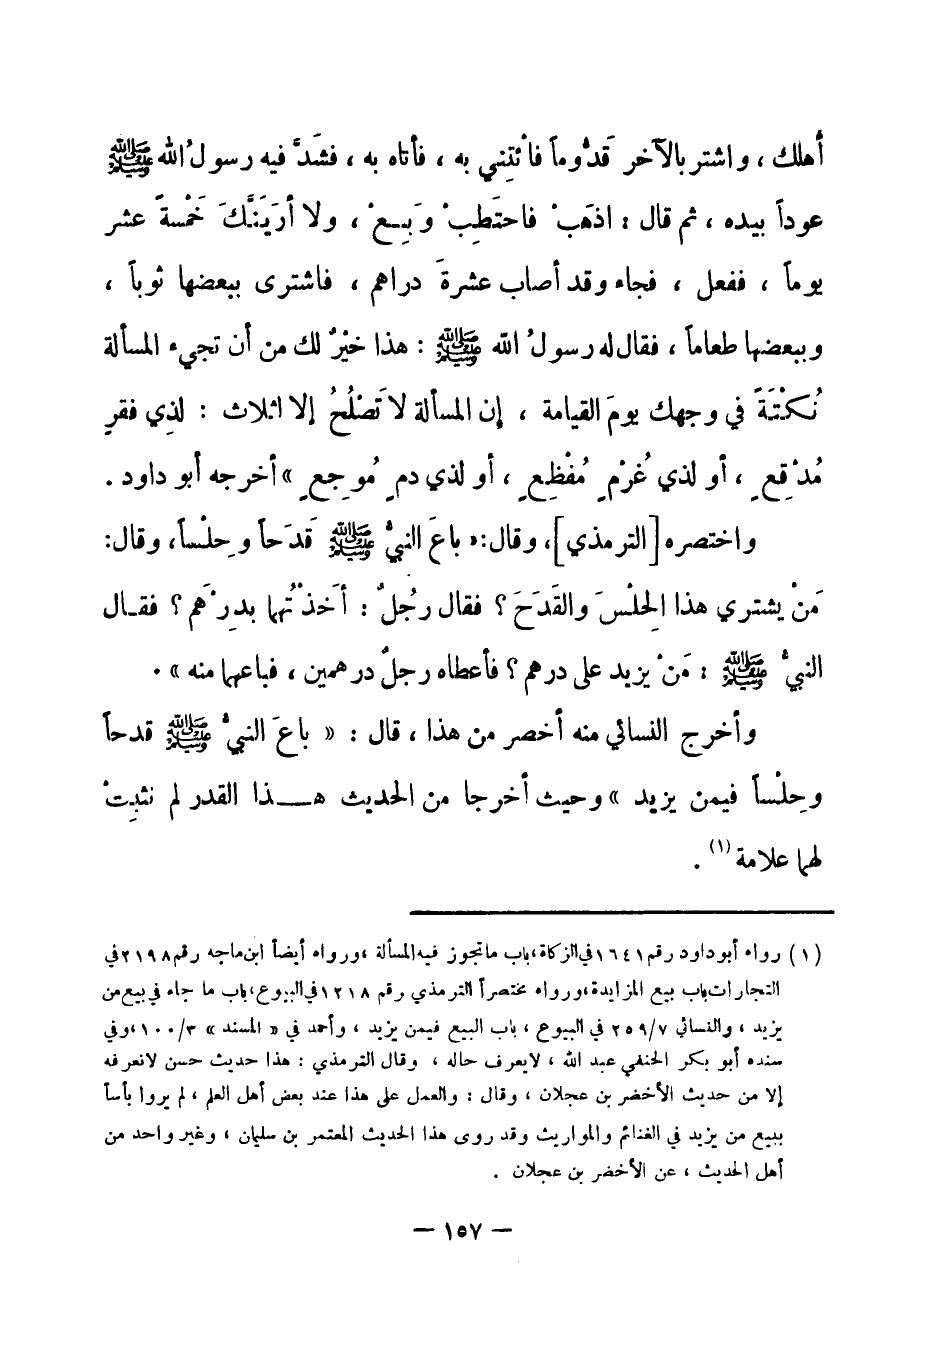 أهلك ، واشتر بالآخر قَدُّوماً فائتني به ، فأتاه به ، فشَدَّ فيه رسولُ الله ﷺ
عوداً بيده ، ثم قال : اذهَبْ فاحتَطِبْ وَبِعْ ، ولا أرَيَنَّكَ خَمْسةَ عشر
يوماً ، ففعل ، فجاء وقد أصاب عشرةَ دراهم ، فاشترى ببعضها ثوباً ،
وببعضها طعاماً ، فقال له رسولُ الله ﷺ : هذا خيْرٌ لك من أن تجيء المسألة
نُكْتَةً في وجهك يومَ القيامة ، إن المسألة لا تَصْلُحُ إلا لثلاث : لذِي فقرٍ
مُدْقِعٍ ، أو لذي غُرْمٍ مُفْظِعٍ ، أو لذي دمٍ مُوجِعٍ » أخرجه أبو داود .
واختصره [الترمذي] ، وقال : « باعَ النبيُّ ﷺ قَدَحاً وحِلْساً ، وقال :
مَنْ يشتري هذا الحِلْسَ والقَدَحَ ؟ فقال رجُلٌ : أخَذْتُهما بدِرْهَم ؟ فقـال
النبيُّ ﷺ : مَنْ يزيد على درهم ؟ فأعطاه رجلٌ درهمين ، فباعهما منه » .
وأخرج النسائي منه أخصر من هذا ، قال : « باعَ النبيُّ ﷺ قدحاً
وحِلْساً فيمن يزيد » وحيث أخرجا من الحديث هـــذا القدر لم نثبِتْ
لهما علامة (١) .
(١) رواه أبو داود رقم ١٦٤١ في الزكاة ، باب ما تجوز فيه المسألة ، ورواه أيضاً ابن ماجه رقم ٢١٩٨ في
التجارات باب بيع المزايدة ، ورواه مختصراً الترمذي رقم ١٢١٨ في البيوع ، باب ما جاء في بيع من
يزيد ، والنسائي ٢٥٩/٧ في البيوع ، باب البيع فيمن يزيد ، وأحمد في « المسند » ١٠٠/٣ ، وفي
سنده أبو بكر الحنفي عبد الله ، لايعرف حاله ، وقال الترمذي : هذا حديث حسن لانعرفه
إلا من حديث الأخضر بن عجلان ، وقال : والعمل على هذا عند بعض أهل العلم ، لم يروا بأساً
ببيع من يزيد في الغنائم والمواريث وقد روى هذا الحديث المعتمر بن سليمان ، وغير واحد من
أهل الحديث ، عن الأخضر بن عجلان .
— ١٥٧ —